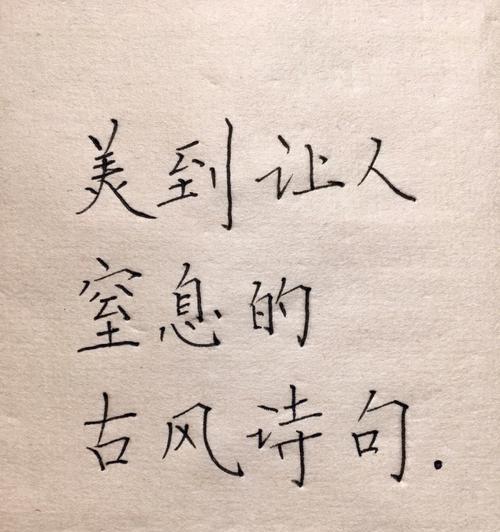 美到让人
窒息的
古风诗句.